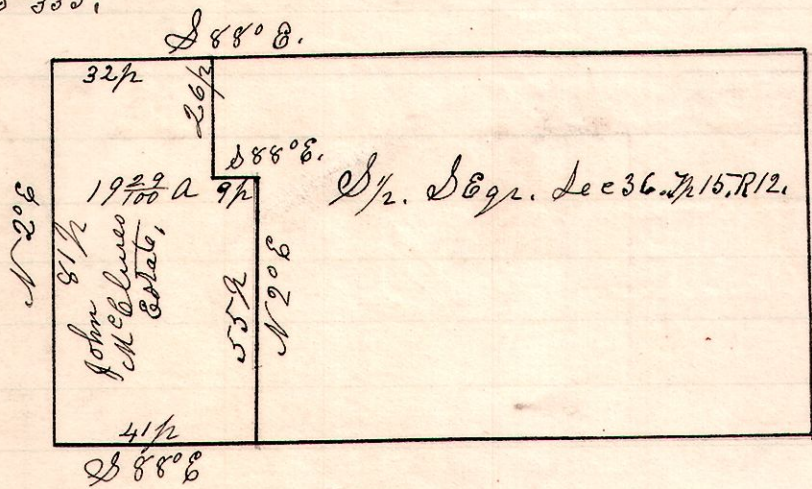 S 88° E.
32p
26p
S 88° E.
19 29/100 A
9p
S 1/2. S E qr. Sec 36. Tp 15. R 12.
N 2° E
81p
John
McClures
Estate,
55p
N 2° E
41p
S 88° E